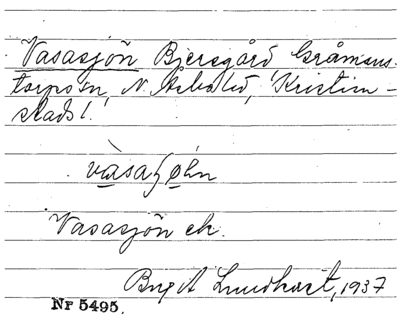 Vasasjön Bjersgård Gråmans-
torps sn, N. Åsbo hd, Kristian-
stads l.
vàsaʃøn
Vasasjön ek.
Birgit Lundkvist, 1937
Nr 5495.